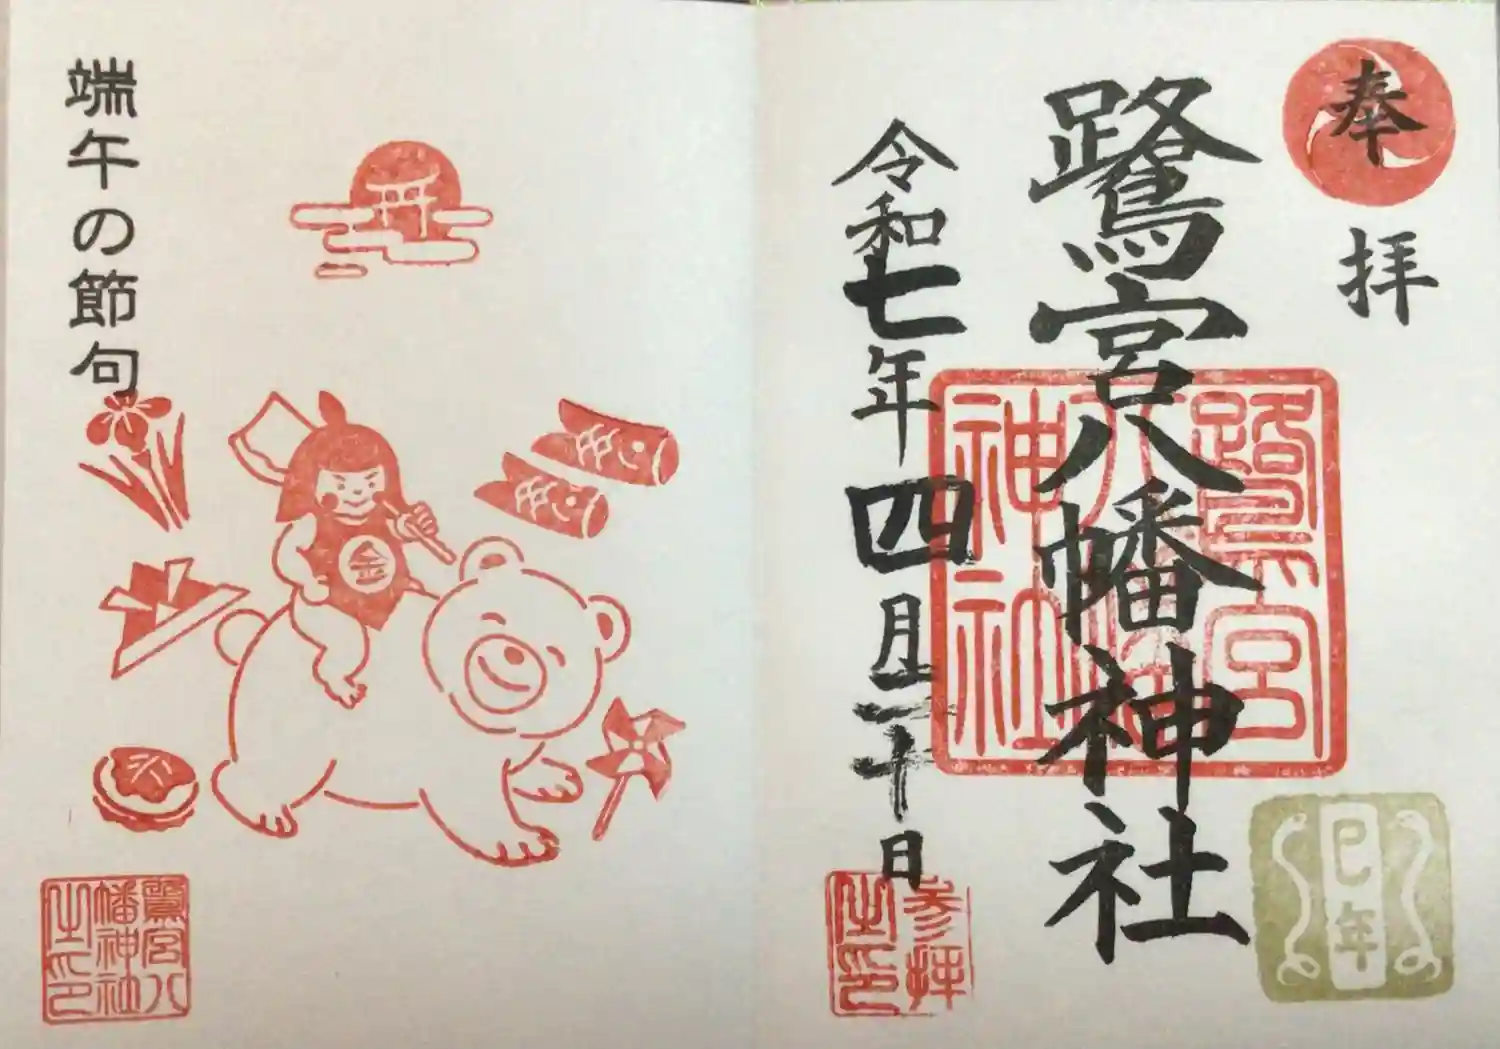 奉拝
鷺宮八幡神社
鷺宮
八幡
神社
令和七年四月二十日
巳年
参拝
之印
端午の節句
金
鷺宮八
幡神社
之印